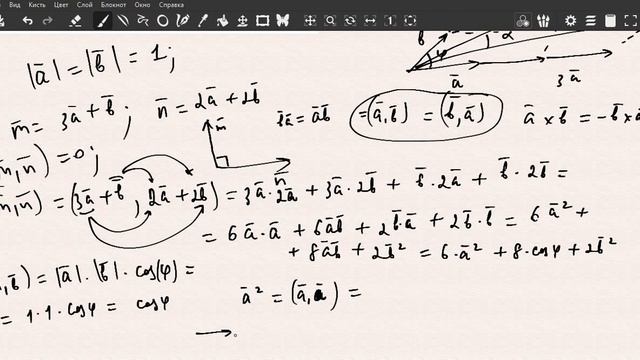 Вид Кисть Цвет Слой Блокнот Окно Справка
|a̅| = |b̅| = 1;
b̅ φ α a̅ 3a̅
m̅ = 3a̅ + b̅ ; n̅ = 2a̅ + 2b̅
b̅a̅ = a̅b̅ = (a̅,b̅) = (b̅,a̅) a̅ × b̅ = -b̅ ×
n̅) = 0; m̅ n̅
n̅) = (3a̅ + b̅ , 2a̅ + 2b̅) = 3a̅·2a̅ + 3a̅·2b̅ + b̅·2a̅ + b̅·2b̅ =
= 6a̅·a̅ + 6a̅b̅ + 2b̅·a̅ + 2b̅·b̅ = 6a̅² +
+ 8a̅b̅ + 2b̅² = 6·a̅² + 8·cosφ + 2b̅²
,b̅) = |a̅|·|b̅|·cos(φ) =
= 1·1·cosφ = cosφ
a̅² = (a̅,a̅) =